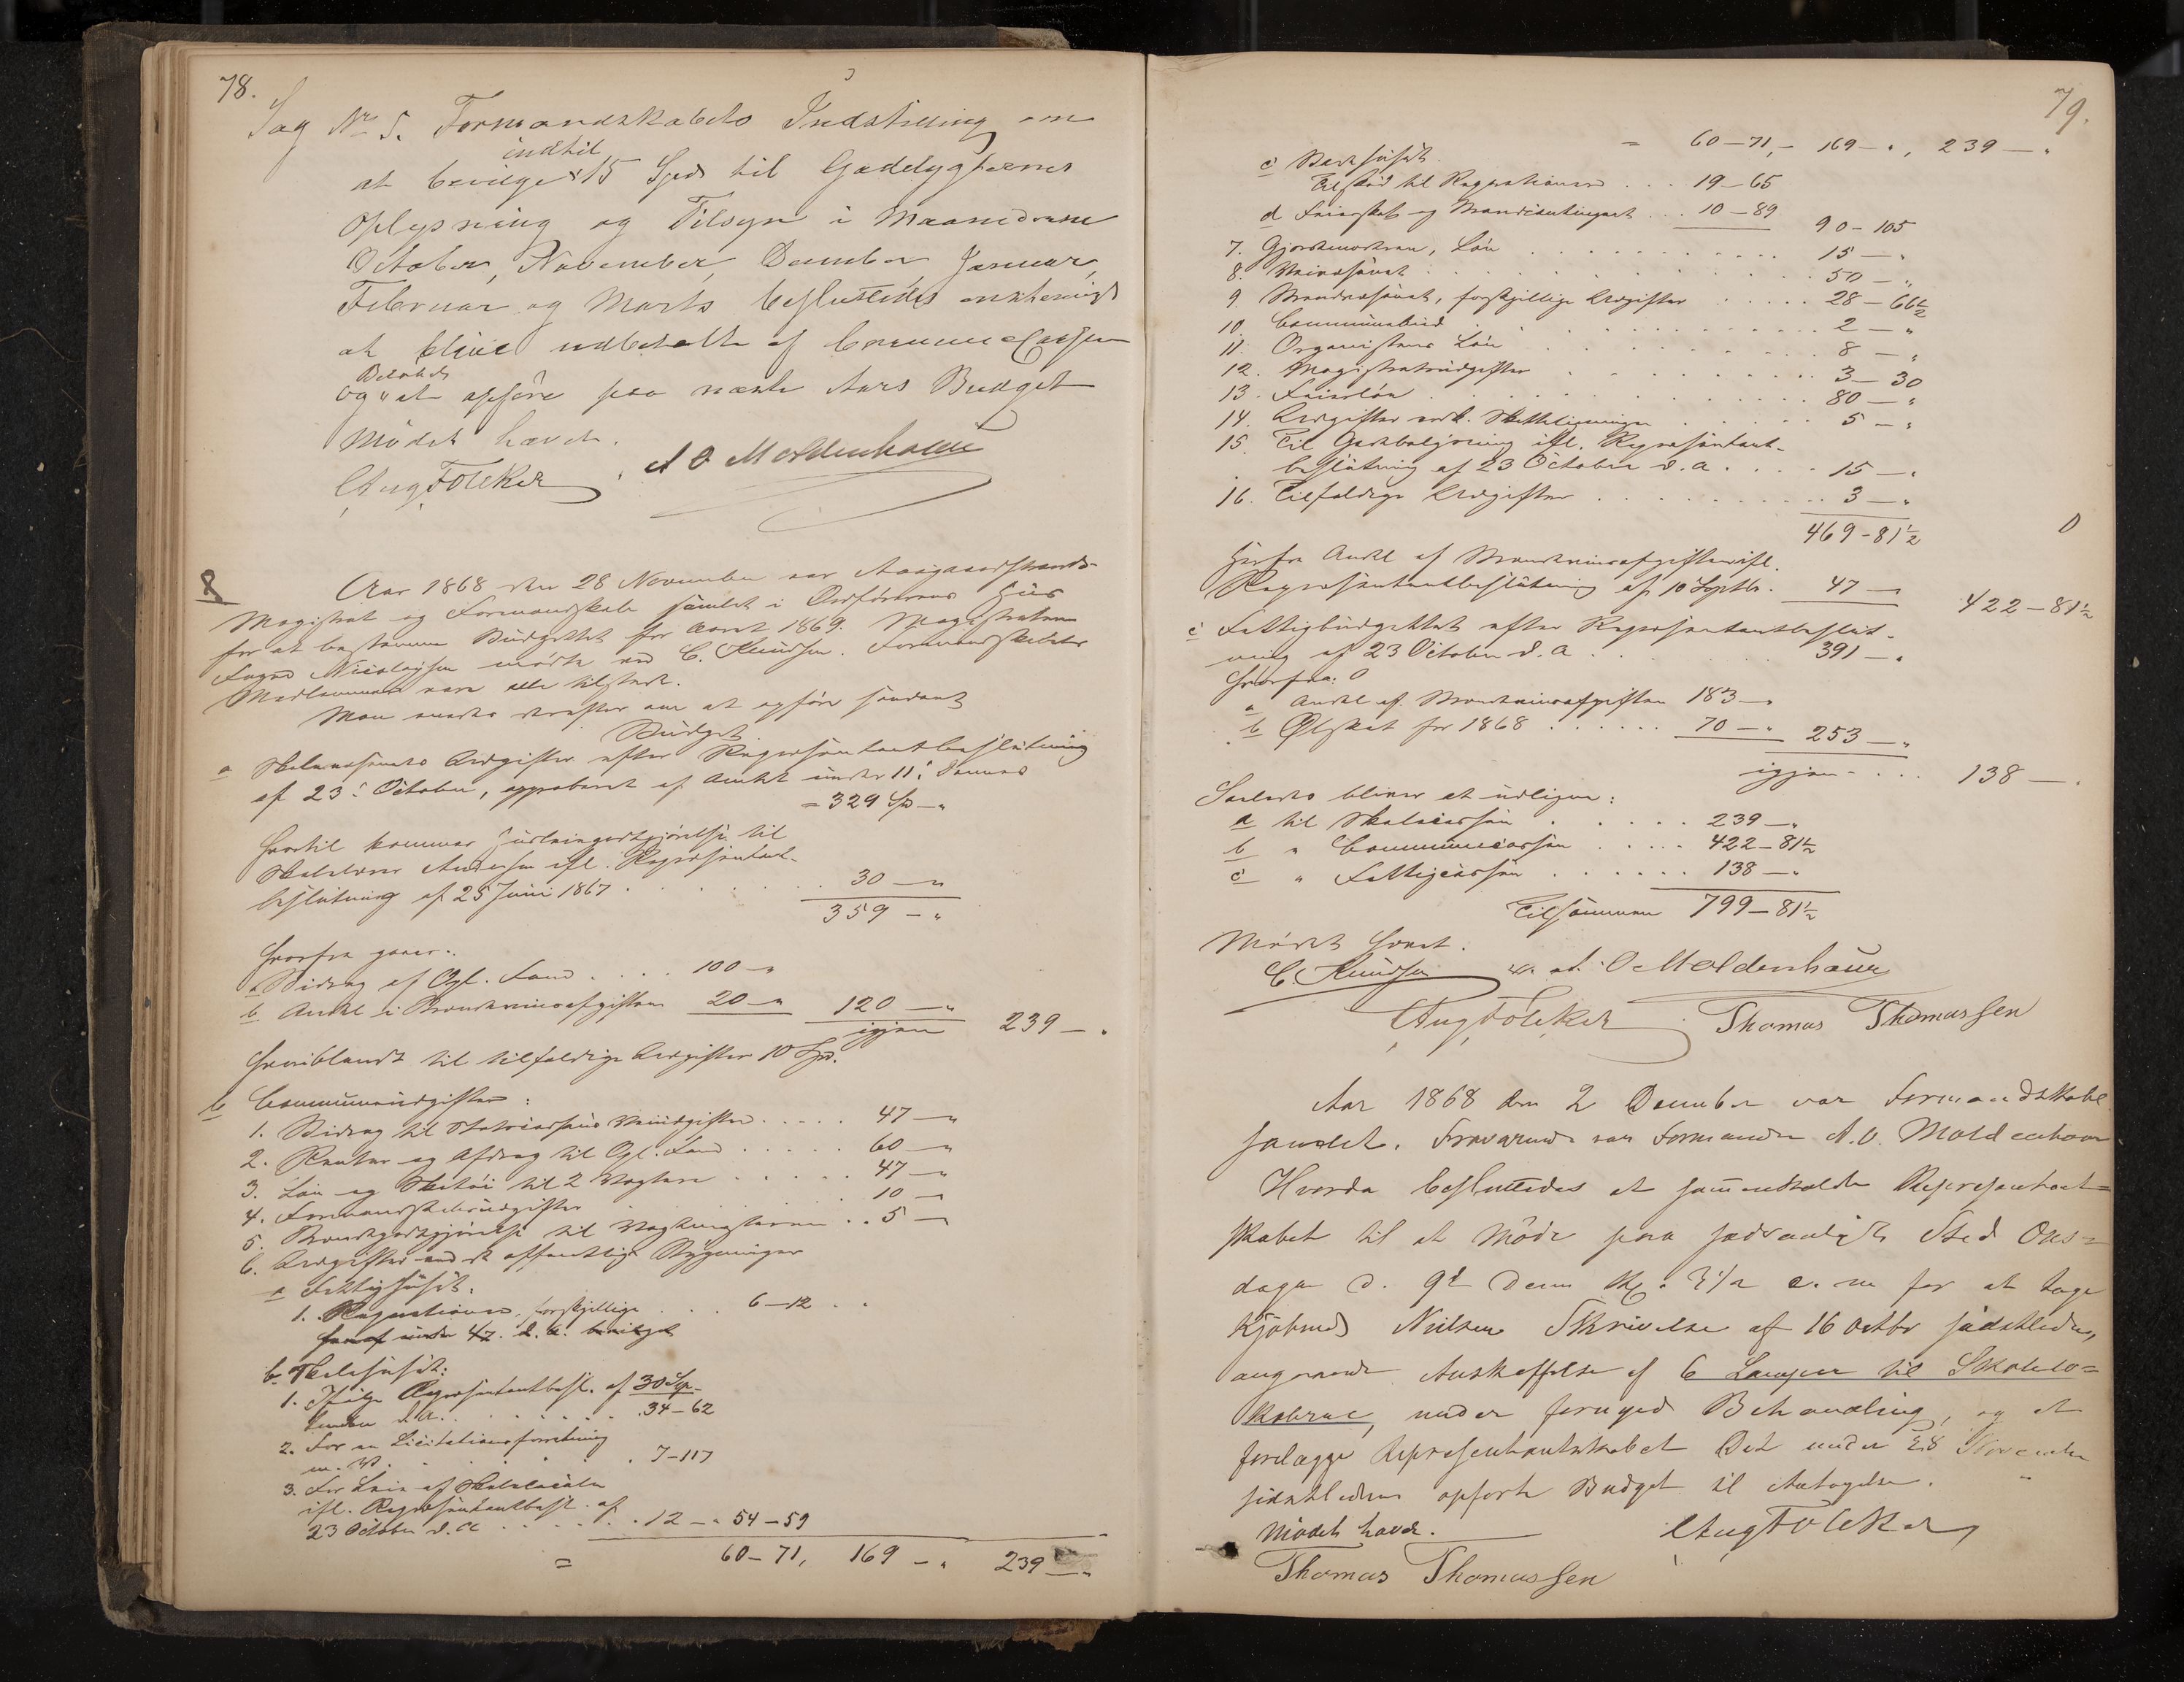 78.
Sag No 5. Formandskabets Indstilling om
indtil
at bevilge 15 Spd til Gadelygternes
Oplysning og Tilsyn i Maanederne
October, November, December, Januar,
Februar og Marts besluttedes enstemmigt
at blive udbetalt af Communecassen
Beløbet
og at opføre paa næste Aars Budget
Mødet hævet.
Aug Føleker A O Moldenhauer
Aar 1868 den 28 November var Aasgaardstrands
Magistrat og Formandskab samlet i Ordførerens Huus
for at bestemme Budgettet for Aaret 1869. Magistraten
Foged Nicolaysen mødte ved C. Knudsen. Formandskabets
Medlemmer vare alle tilstede.
Man enedes derefter om at opføre saadant
Budget
a Skolevæsenets Udgifter efter Repræsentantbeslutning
af 23de October, approberet af Amtet under 11te dennes
= 329 Sp — "
Hertil kommer Huusleiegodtgjørelse til
Skolelærer Andersen ifl. Repræsentant-
beslutning af 25 Juni 1867 . . . 30 — "
359 — "
Herfra gaaer:
a Bidrag af Opl. Fond . . . . 100 — "
b Andel i Brændeviinsafgiften 20 — " 120 — "
igjen 239 — "
Heriblandt til tilfældige Udgifter 10 Spd.
b Communeudgifter:
1. Bidrag til Statscassens Veiudgifter . . . . 47 — "
2. Renter og Afdrag til Opl. Fond . . . . 60 — "
3. Løn og Skotøi til 2 Vægtere . . . . 47 — "
4. Formandskabsudgifter . . . 10 — "
5. Brændgodtgjørelse til Vægterne . . 5 — "
6. Udgifter ved de offentlige Bygninger
a Fattighuset.
1. Reparationer, forskjellige . . . 6 — 12
b. Skolehuset:
1. Ifølge Repræsentantbesl. af 30 Sep-
tember d.A. . . . . . 34 — 62
2. For en Licitationsforretning
m. V. . . . . 7 — 117
3. For Leie af Skolelocale
ifl. Repræsentantbesl. af
23 October d. A . . . . 12 — " 54 — 59
= 60 — 71, 169 — " 239 — "
79.
= 60 — 71, — 169 — ", 239 — "
c
Tilskud til Reparationer . . . 19 — 65
d . . . 10 — 89
90 — 105
7. Gjordemoderen, Løn . . . . 15 — "
8. Veivæsenet . . . . 50 — "
9. Brandvæsenet, forskjellige Udgifter . . . . 28 — 66½
10. Communebud . . . . 2 — "
11. Organistens Løn . . . . 8 — "
12. Magistratsudgifter . . . . 3 — 30
13. Feierløn . . . . 80 — "
14. Udgifter ved Skatteligningen . . . . 5 — "
15. Til Gadebelysning ifl. Repræsentant-
beslutning af 23 October d. A. . . . 15 — "
16. Tilfældige Udgifter . . . . 3 — "
469 — 81½
Herfra Andel af Brændeviinsafgiften ifl.
Repræsentantbeslutning af 10 Septbr. 47 — " 422 — 81½
c Fattigbudgettet efter Repræsentantbeslut-
ning af 23 October d. A . . . 391 — "
Herfra:
a Andel af Brændeviinsafgiften 183 — "
b Ølskat for 1868 . . . . 70 — " 253 — "
igjen . . . 138 — "
Saaledes bliver at udligne:
a til Skolecassen . . . . 239 — "
b " Communecassen . . . . 422 — 81½
c " Fattigcassen . . . . 138 — "
Tilsammen 799 — 81½
Mødet hævet.
C. Knudsen A. O Moldenhauer
Aug Føleker Thomas Thomassen
Aar 1868 den 2 December var Formandskabet
samlet. Fraværende var Formanden A. O. Moldenhauer
Hvorda besluttedes at sammenkalde Repræsentant=
skabet til at Møde paa sædvanligt Sted Ons=
dagen d. 9de Dennes Kl. 3½ e. m for at tage
Kjøbmd Nielsen Skrivelse af 16 Octbr sidstleden,
angaaende Anskaffelse af 6 Lamper til Skolelo=
kalerne, under fornyed Behandling, og at
forelægge Repræsentantskabet Det under 28 November
sidstleden opførte Budget til Antagelse.
Mødet hævet. Aug Føleker
Thomas Thomassen